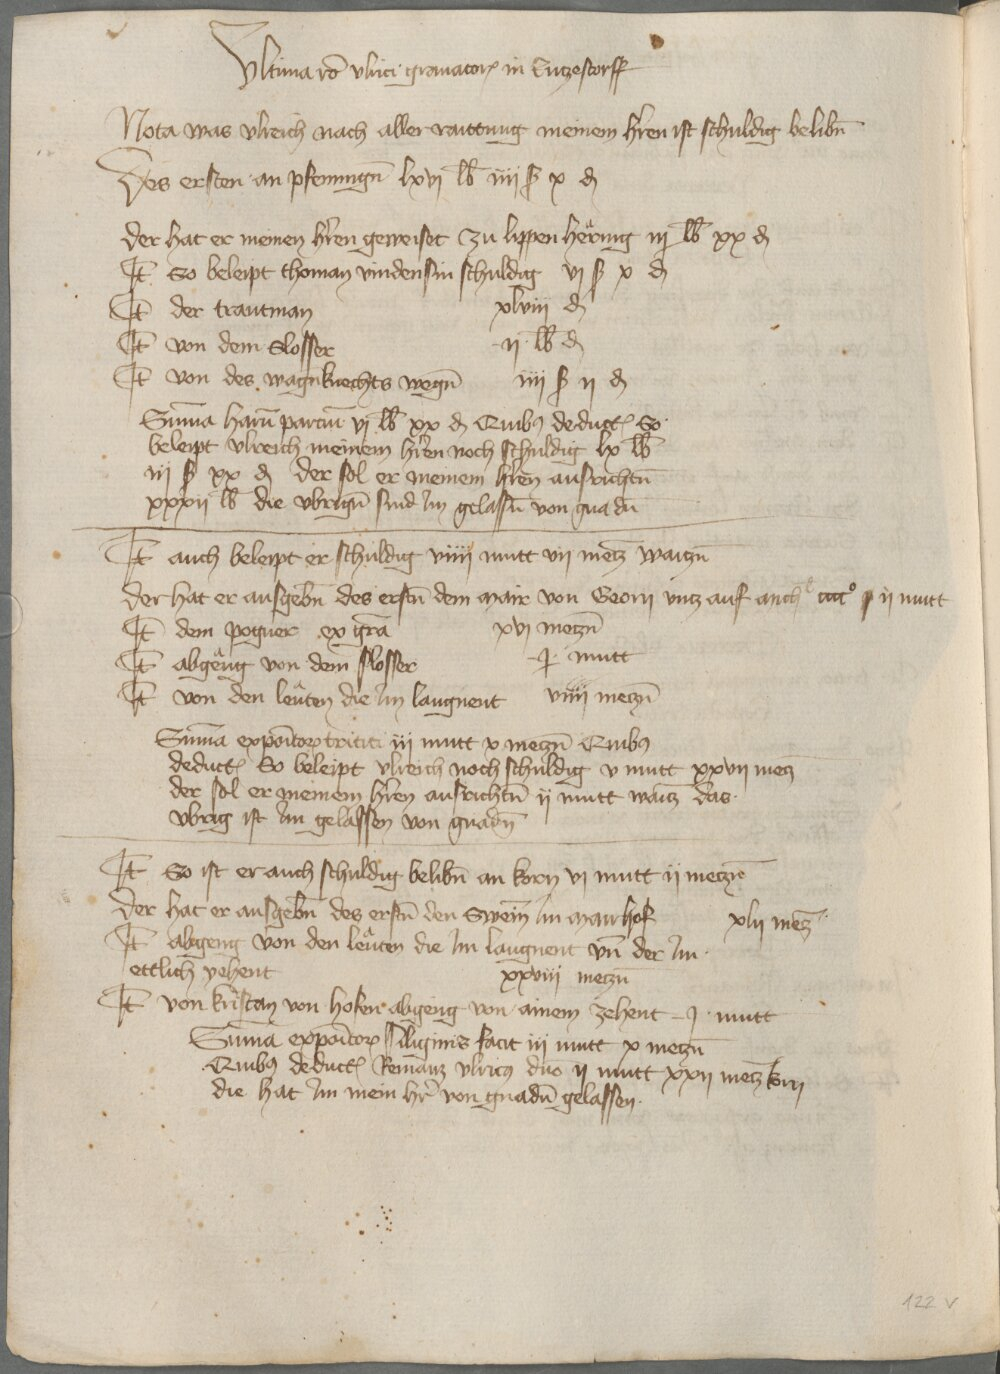 Ultima ro͞ ulrici granatoris in Enzestorff
Nota was Ulreich nach aller raittung meinem hr͞ren ist schuldig belibn͞
Des ersten an pfeningn͞ lxvi lb iiij ß x d
der hat er meinen hr͞ren geweiset zu lippen hering iij lb xx d
It͞ so beleipt thoman schuldig vi ß x d
It͞ der trautman xlviii d
It͞ von dem Slosser ii lb d
It͞ von des wagn͞knechts wegn͞ iiij ß ii d
Sum͞a haru͞ parciu͞ vi lb xx d Quibus deductis So
beleipt Ulreich meinem hr͞ren noch schuldig lx lb
iij ß xx d der sol er meinem hr͞ren ausrichtn͞
xxxii lb die ubrign͞ sind im gelassn͞ von gnadn͞
It͞ auch beleipt er schuldig viiii mutt vii mecz͞ waiczn͞
Der hat er ausgebn͞ des erstn͞ dem mair von Georii uncz auf ii mutt
It͞ dem pogner ex gra͞ xvi meczn͞
It͞ abgeng von dem slosser j mutt
It͞ von den leuten die im laugnent viiii meczn͞
Sum͞a expo͞itorum tritici iij mutt v meczn͞ Quibus
deductis So beleipt Ulreich noch schuldig v mutt xxvii mecz
der sol er meinem hr͞ren ausrichtn͞ ij mutt waicz das
ubrig ist im gelassen von gnadn͞
It͞ So ist er auch schuldig belibn͞ an korn vi mutt ii mecze͞
Der hat er ausgebn͞ des erstn͞ den Swein͞ im mairhof xlii mecz͞
It͞ abgeng von den leuten die im laugnent un͞ der im
ettlich yehent xxviii meczn͞
It͞ von kristan von hofen abgeng von ainem zehent j mutt
Sum͞a expo͞itorum siliginis facit iij mutt x meczn͞
Quibus deductis Reman͞z ulricus duo ii mutt xxii mecz͞ korn
die hat im mein hr͞ von gnadn͞ gelassen
122 v